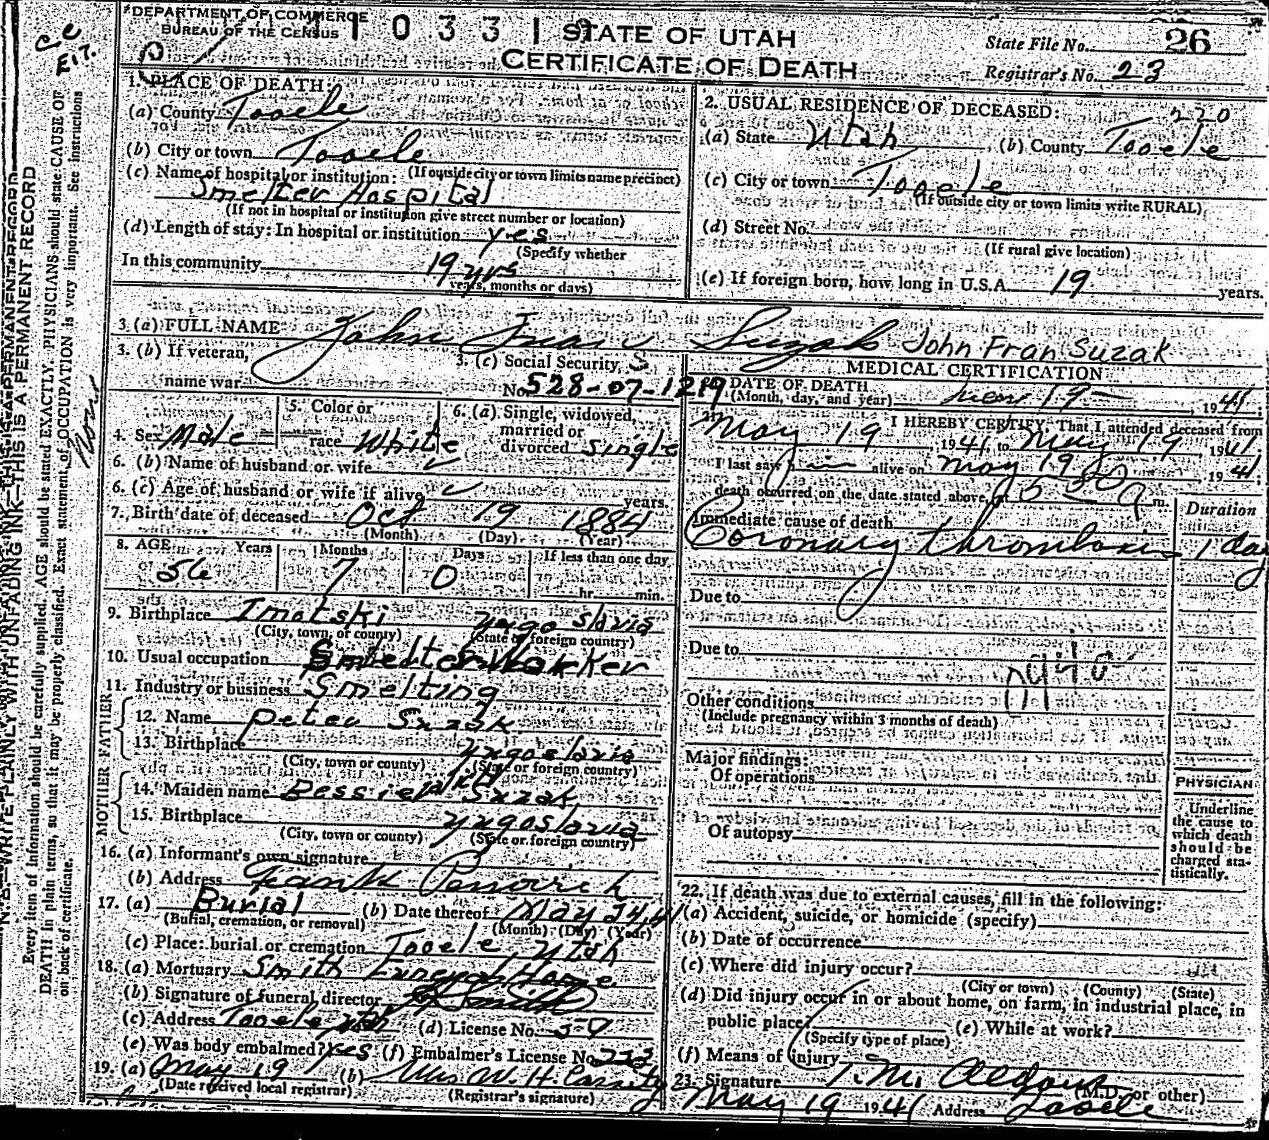 DEPARTMENT OF COMMERCE
BUREAU OF THE CENSUS
1033
STATE OF UTAH
CERTIFICATE OF DEATH
State File No. 26
Registrar's No. 23
1. PLACE OF DEATH:
(a) County Tooele
(b) City or town Tooele
(If outside city or town limits name precinct)
(c) Name of hospital or institution:
Smelter Hospital
(If not in hospital or institution give street number or location)
(d) Length of stay: In hospital or institution yes
(Specify whether
In this community 19 yrs
years, months or days)
2. USUAL RESIDENCE OF DECEASED: 220
(a) State Utah (b) County Tooele
(c) City or town Tooele
(If outside city or town limits write RURAL)
(d) Street No.
(If rural give location)
(e) If foreign born, how long in U.S.A. 19 years.
3. (a) FULL NAME John Fran Suzak John Fran Suzak
3. (b) If veteran,
name war
3. (c) Social Security
No. 528-07-1219
4. Sex Male
5. Color or
race White
6. (a) Single, widowed,
married or
divorced single
6. (b) Name of husband or wife
6. (c) Age of husband or wife if alive years.
7. Birth date of deceased Oct 19 1884
(Month) (Day) (Year)
8. AGE Years Months Days If less than one day
56 7 0 hr. min.
9. Birthplace Imotski Yugoslavia
(City, town, or county) (State or foreign country)
10. Usual occupation Smelter Worker
11. Industry or business Smelting
FATHER
12. Name Peter Suzak
13. Birthplace Yugoslavia
(City, town or county) (State or foreign country)
MOTHER
14. Maiden name Bessie Suzak
15. Birthplace Yugoslavia
(City, town or county) (State or foreign country)
16. (a) Informant's own signature
(b) Address Frank
17. (a) Burial (b) Date thereof May 24, 41
(Burial, cremation, or removal) (Month) (Day) (Year)
(c) Place: burial or cremation Tooele Utah
18. (a) Mortuary Smith Funeral Home
(b) Signature of funeral director Smith
(c) Address Tooele Utah (d) License No.
(e) Was body embalmed? yes (f) Embalmer's License No.
19. (a) May 19 (b) Mrs W. H. Cassity
(Date received local registrar) (Registrar's signature)
MEDICAL CERTIFICATION
DATE OF DEATH
(Month, day, and year) May 19 1941
I HEREBY CERTIFY, That I attended deceased from
May 19 1941 to May 19 1941
I last saw him alive on May 19 1941
death occurred on the date stated above, at m.
Immediate cause of death Duration
Coronary thrombosis 1 day
Due to
Due to
Other conditions
(Include pregnancy within 3 months of death)
Major findings:
Of operations
Of autopsy
PHYSICIAN
Underline
the cause to
which death
should be
charged sta-
tistically.
22. If death was due to external causes, fill in the following:
(a) Accident, suicide, or homicide (specify)
(b) Date of occurrence
(c) Where did injury occur?
(City or town) (County) (State)
(d) Did injury occur in or about home, on farm, in industrial place, in
public place?
(Specify type of place)
(e) While at work?
(f) Means of injury
23. Signature T. M. Aldous
(M.D. or other)
May 19 1941 Address Tooele
N.B.—WRITE PLAINLY WITH UNFADING INK—THIS IS A PERMANENT RECORD
Every item of information should be carefully supplied. AGE should be stated EXACTLY. PHYSICIANS should state CAUSE OF
DEATH in plain terms, so that it may be properly classified. Exact statement of OCCUPATION is very important. See instructions
on back of certificate.